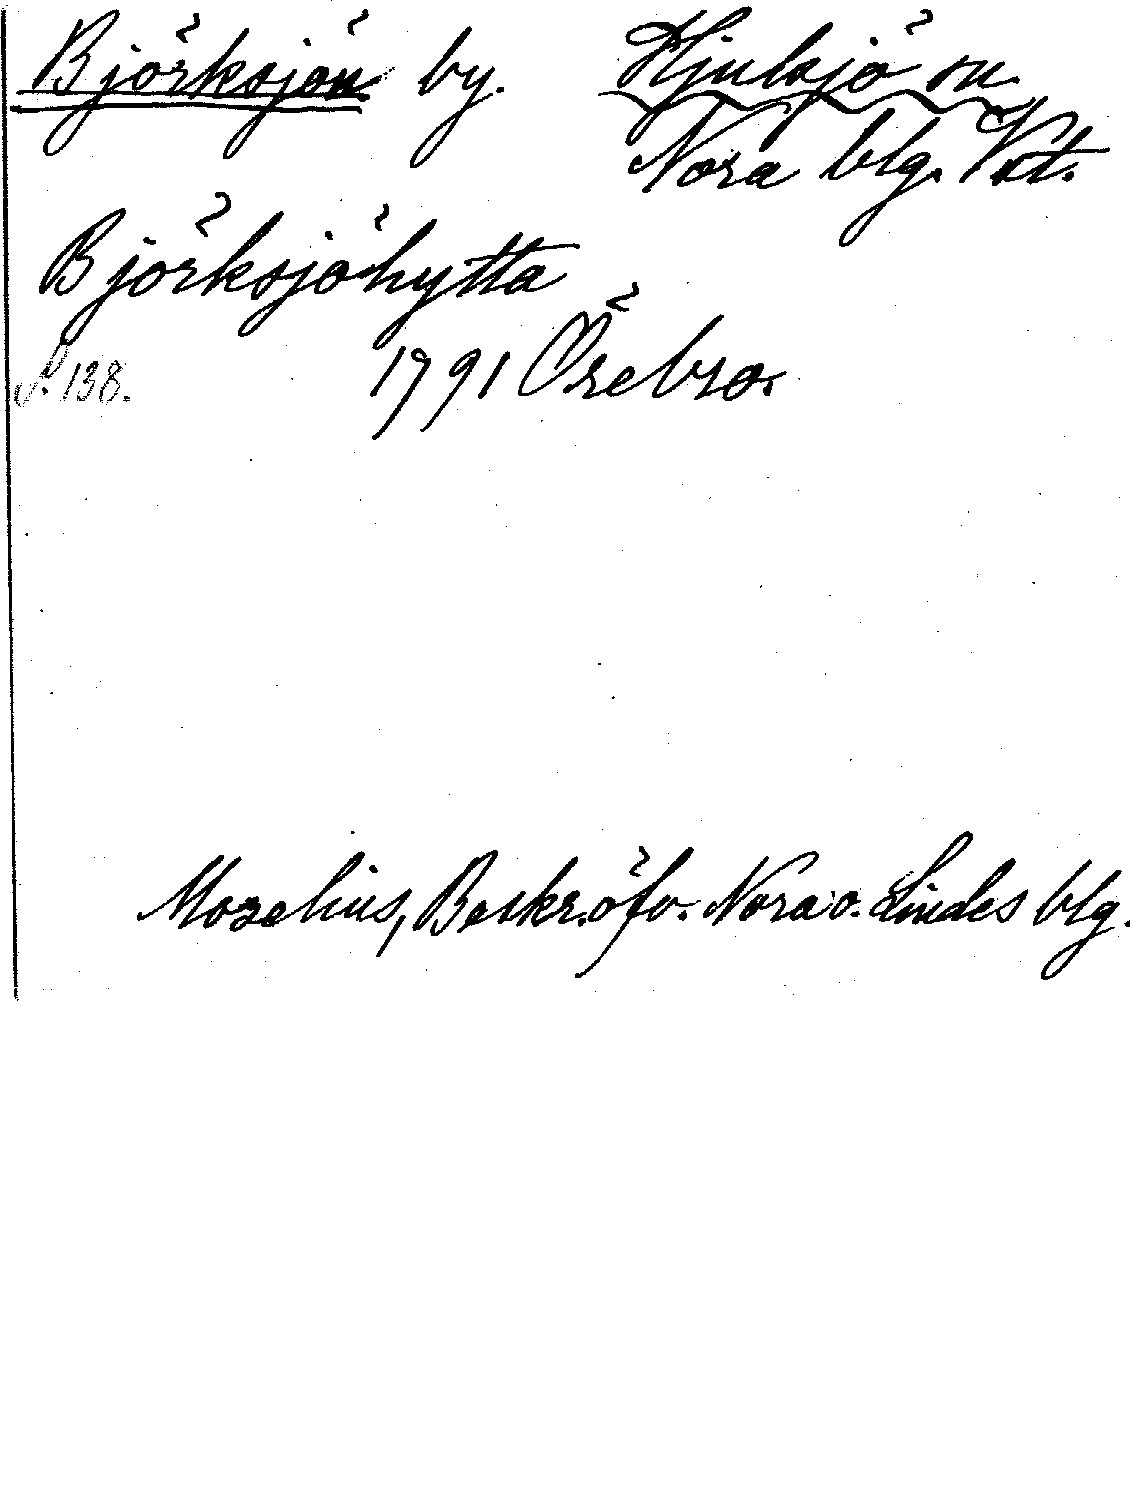 Björksjön by. Hjulsjö sn.
Nora blg. Vstm.
Björksjöhytta
s. 138. 1791 Örebro.
Mozelius, Beskr. öfv. Nora o. Lindes blg.